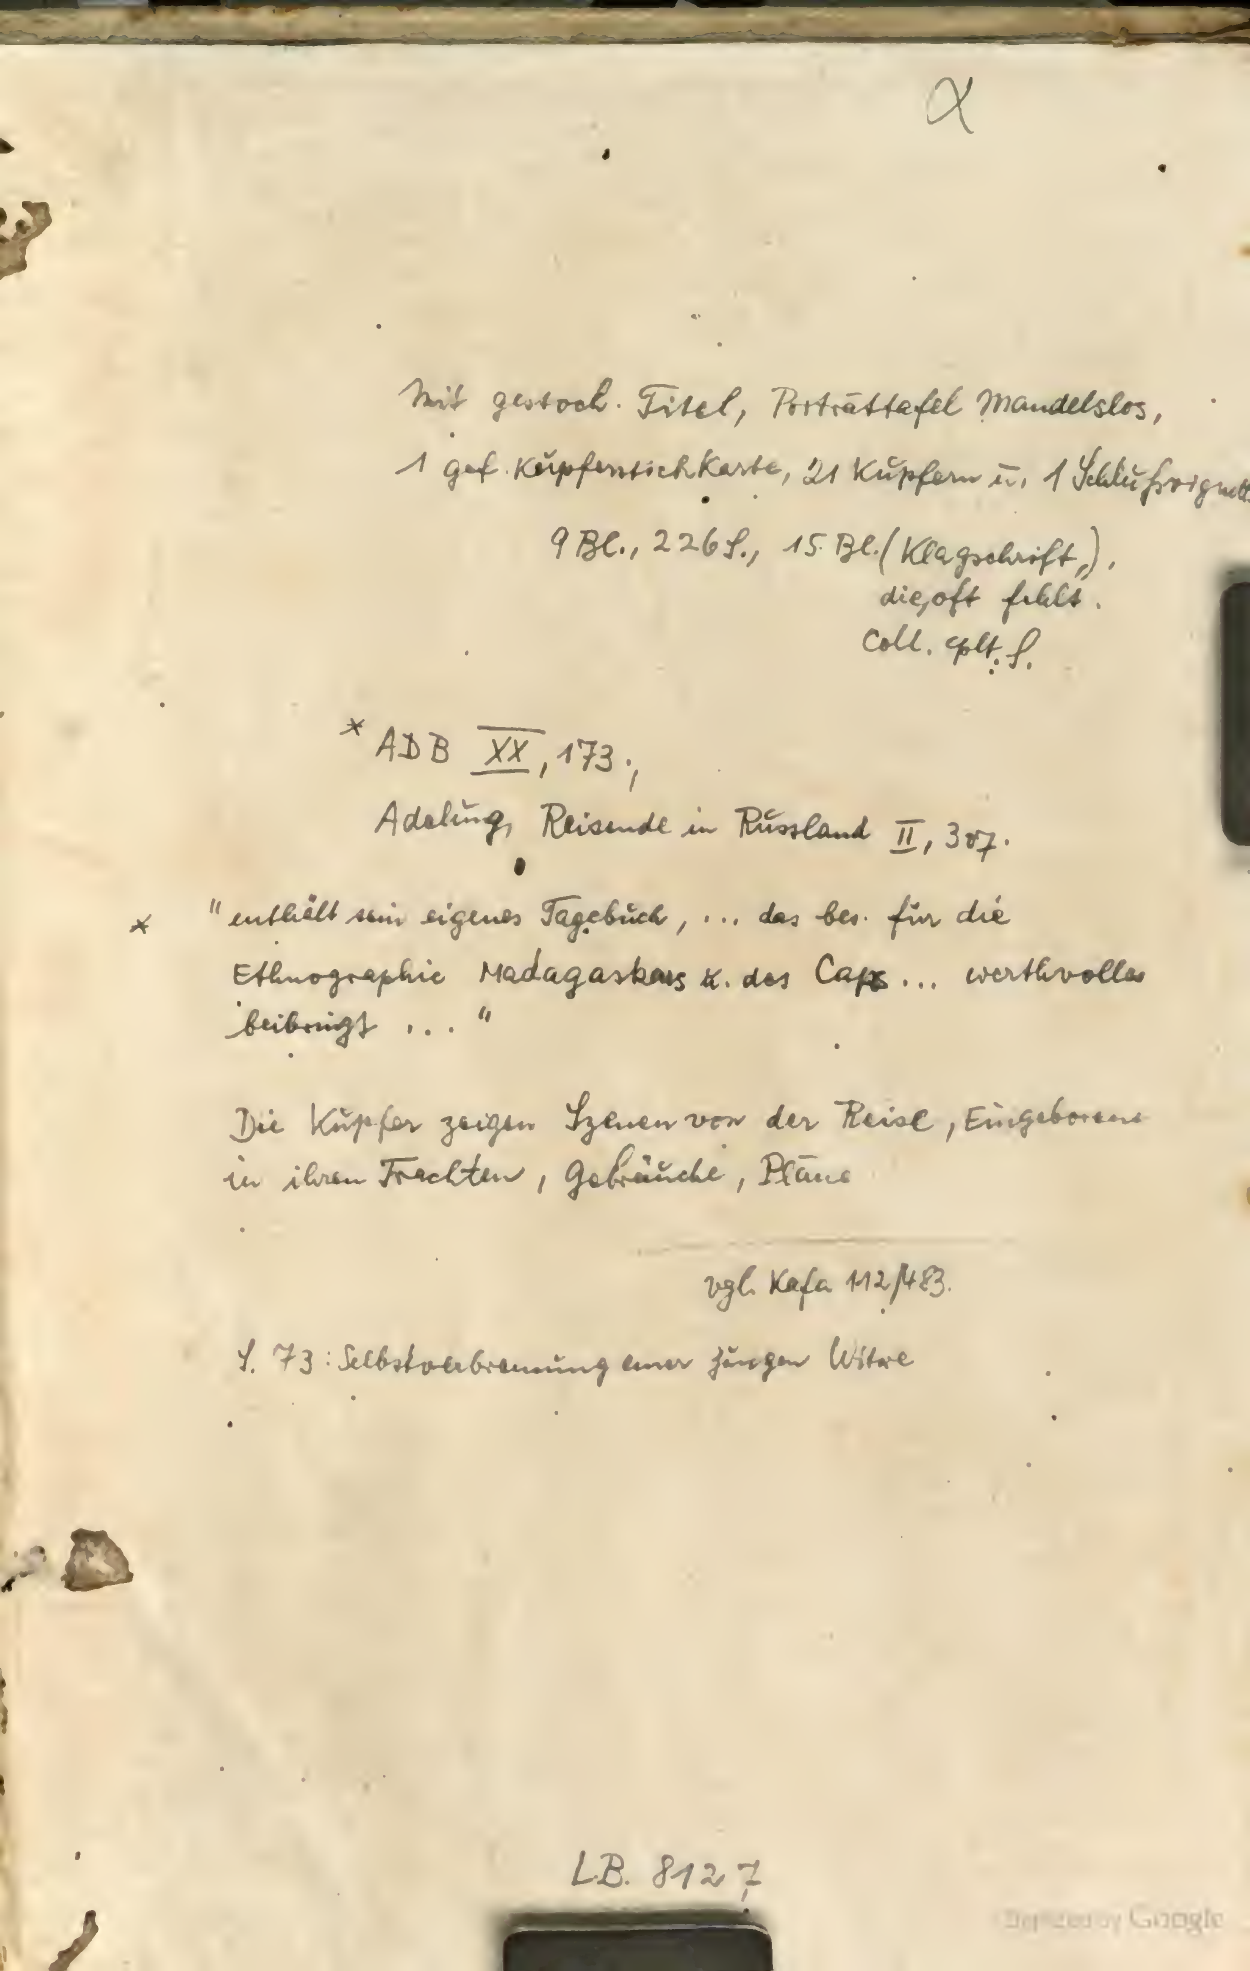 α
Mit gestoch. Titel, Porträttafel Mandelslos,
1 gef. Kupferstichkarte, 21 Kupfern u. 1 Schlußvignette
9 Bl., 226 S., 15 Bl. (Klagschrift,),
die, oft fehlt.
Coll. cplt. S.
* ADB XX, 173.,
Adelung, Reisende in Russland II, 307.
* "enthält sein eigenes Tagebuch, ... das bes. für die
Ethnographie Madagaskars u. des Caps ... werthvolles
beibringt ... "
Die Kupfer zeigen Szenen von der Reise, Eingeborene
in ihren Trachten, Gebräuche, Pläne
vgl. Kafa 112/483.
S. 73: Selbstverbrennung einer jungen Witwe
L.B. 8127
Digitized by Google